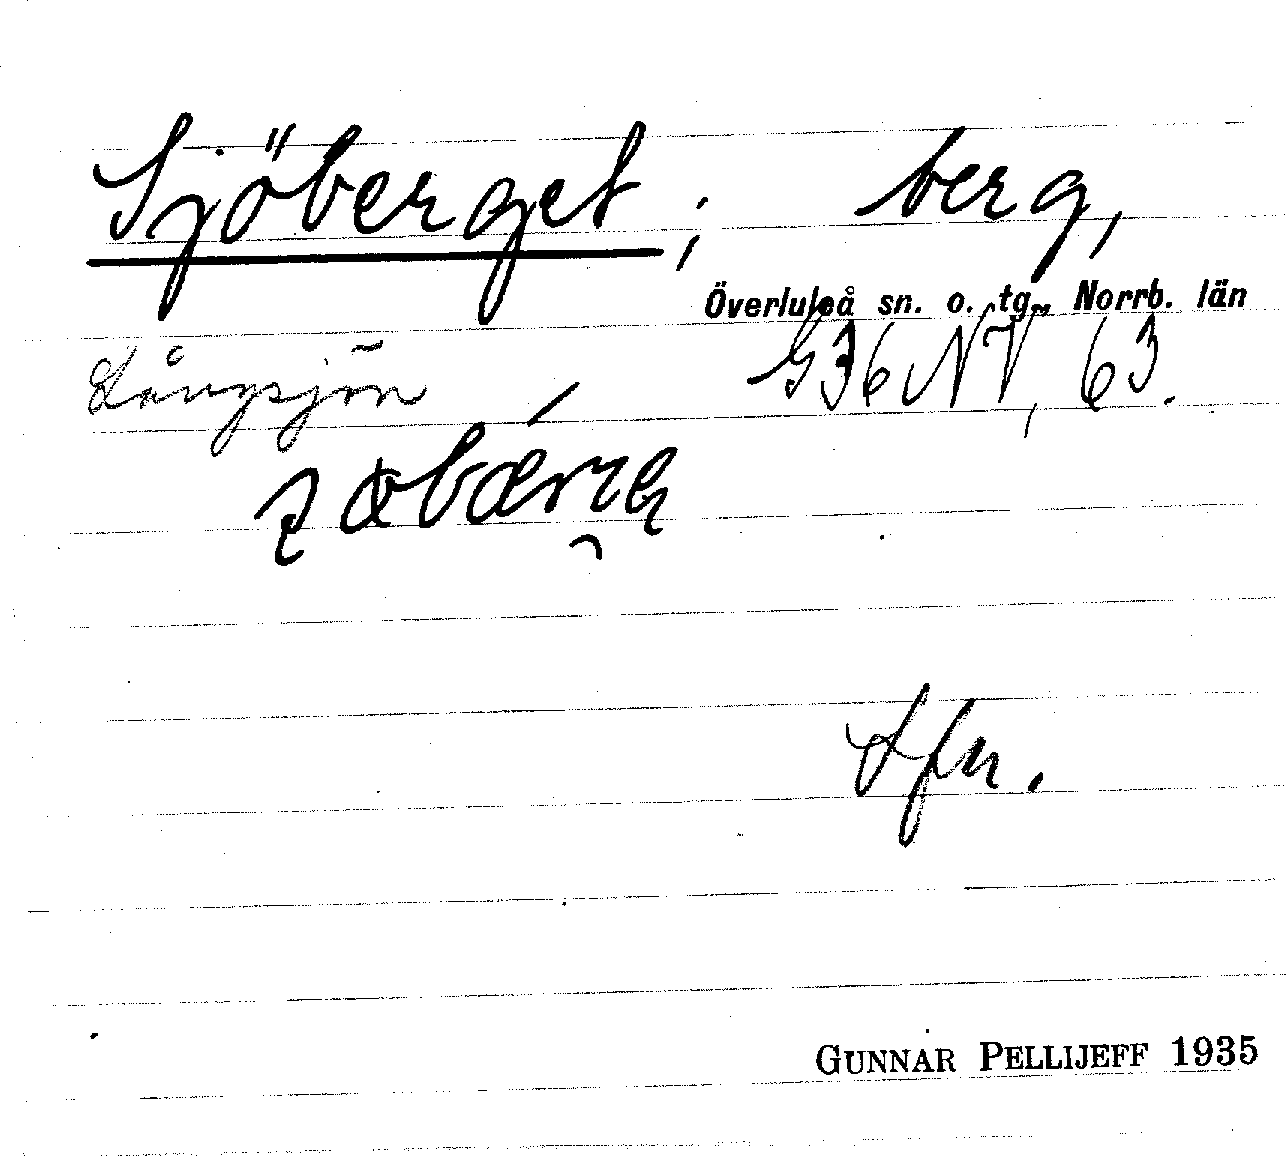 Sjöberget; berg,
Överluleå sn. o. tg., Norrb. län
Långsjön G36NV, 63.
Sfn.
GUNNAR PELLIJEFF 1935